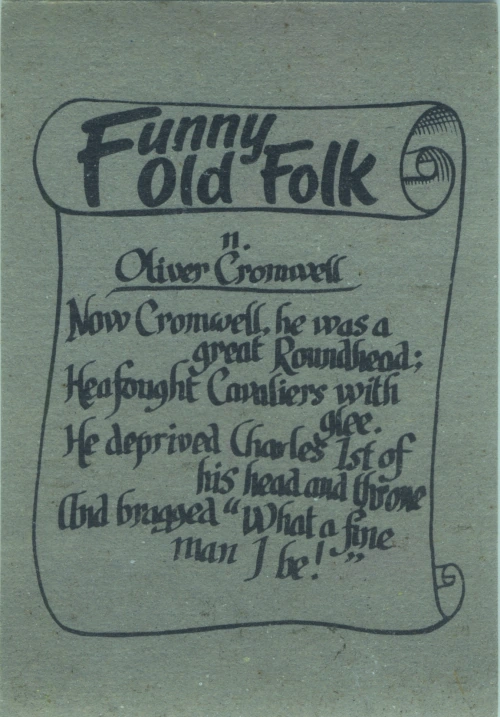 Funny
Old Folk
n.
Oliver Cromwell
Now Cromwell, he was a
great Roundhead;
Hea fought Cavaliers with
glee.
He deprived Charles 1st of
his head and throne
And bragged "What a fine
man I be!"